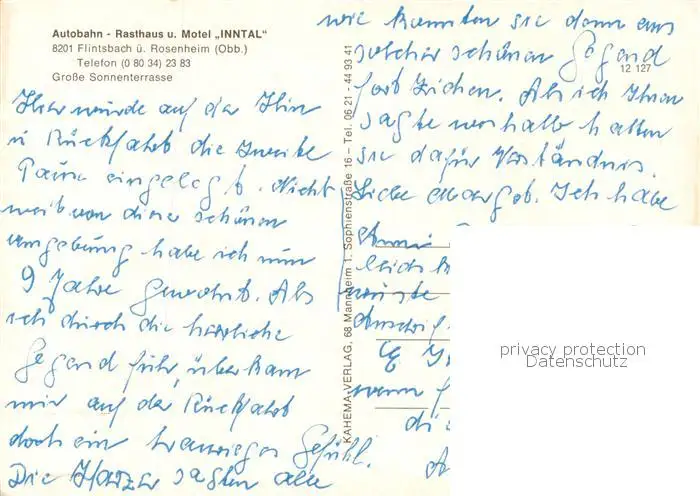 Autobahn - Rasthaus u. Motel „INNTAL"
8201 Flintsbach ü. Rosenheim (Obb.)
Telefon (0 80 34) 23 83
Große Sonnenterrasse
Hier wurde auf der Hin
u Rückfahrt die zweite
Pause eingelegt. Nicht
weit von dieser schönen
umgebung habe ich nun
9 Jahre gewohnt. Als
ich durch die herrliche
Gegend fuhr, überkam
mir auf der Rückfahrt
doch ein trauriges Gefühl.
Die sagten alle
wie konnten sie denn aus
solcher schönen Gegend
fort ziehen. Als ich Ihnen
sagte weshalb hatten
sie dafür Verständnis.
Liebe Margot. Ich habe
leid
wusste
Anschrif
wenn
di
12 127
KAHEMA-VERLAG, 68 Mannheim 1, Sophienstraße 16 – Tel. 06 21 - 44 93 41
privacy protection
Datenschutz